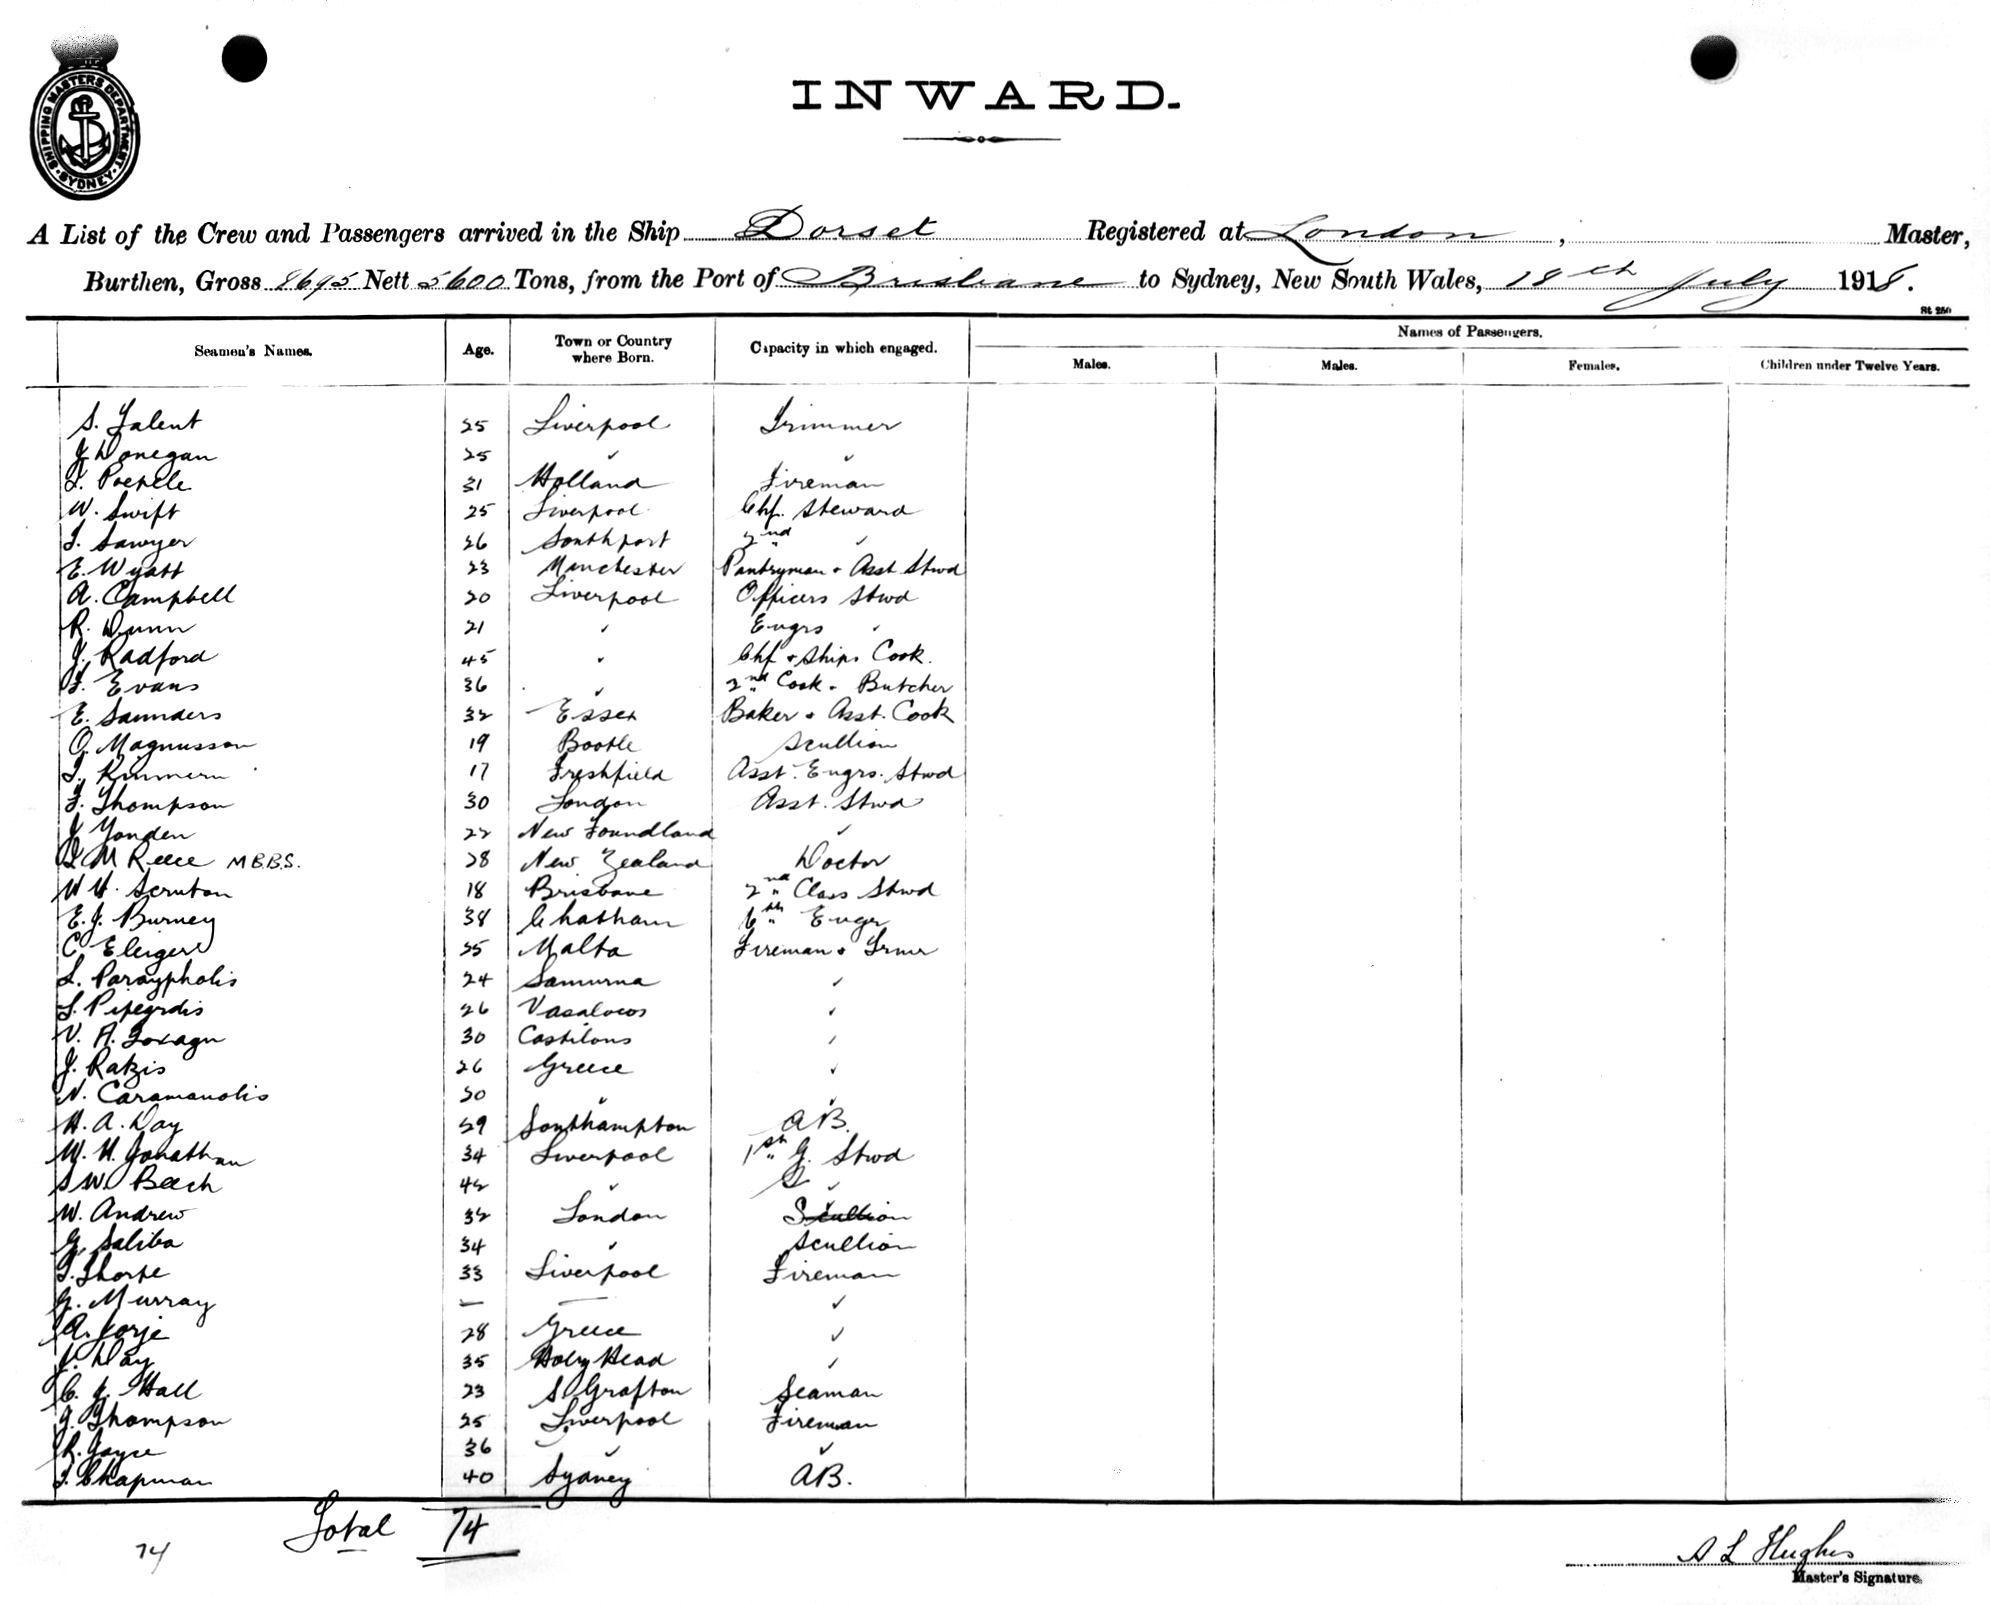 SHIPPING MASTERS DEPARTMENT · SYDNEY ·
INWARD.
A List of the Crew and Passengers arrived in the Ship Dorset Registered at London , Master,
Burthen, Gross 8695 Nett 5600 Tons, from the Port of Brisbane to Sydney, New South Wales, 18th July 1918.
St 250
Seamen's Names. Age. Town or Country where Born. Capacity in which engaged. Names of Passengers.
Males. Males. Females. Children under Twelve Years.
S. Talent 25 Liverpool Trimmer
J Donegan 25 ✓ ✓
31 Holland Fireman
W. Swift 25 Liverpool Chf. Steward
T. Sawyer 26 Southport 2nd ✓
E. Wyatt 23 Manchester Pantryman & Asst Stwd
A. Campbell 20 Liverpool Officers Stwd
R. Dunn 21 ✓ Engrs ✓
J. Radford 45 ✓ Chf & Ships Cook.
T. Evans 36 ✓ 2nd Cook & Butcher
E. Saunders 32 Essex Baker & Asst. Cook
O. Magnusson 19 Bootle Scullion
17 Freshfield Asst. Engrs. Stwd
F. Thompson 30 London Asst. Stwd
J Yonden 22 New Foundland ✓
M Reece M.B.B.S. 28 New Zealand Doctor
W H. Scruton 18 Brisbane 2nd Class Stwd
E. J. Burney 38 Chatham 6th Enger
C 25 Malta Fireman & Trmr
L. Paraypholis 24 Samurna ✓
26 Vasalocos ✓
V. A. 30 Castilons ✓
J. Ratzis 26 Greece ✓
N. Caramanolis 20 ✓ ✓
H. A. Day 29 Southampton AB.
W. H. Jonathan 34 Liverpool 1st G. Stwd
S W. Beech 42 ✓ ✓
W. Andrew 32 London Scullion
G. Saliba 34 ✓ Scullion
T. Thorpe 33 Liverpool Fireman
G. Murray — — ✓
A. Jorje 28 Greece ✓
J. Day 35 Holy Head ✓
C. J. Hall 23 S. Grafton Seaman
J. Thompson 25 Liverpool Fireman
R. Joyce 36 ✓ ✓
T. Chapman 40 Sydney AB.
Total 74
74
A L Hughes
Master's Signature.